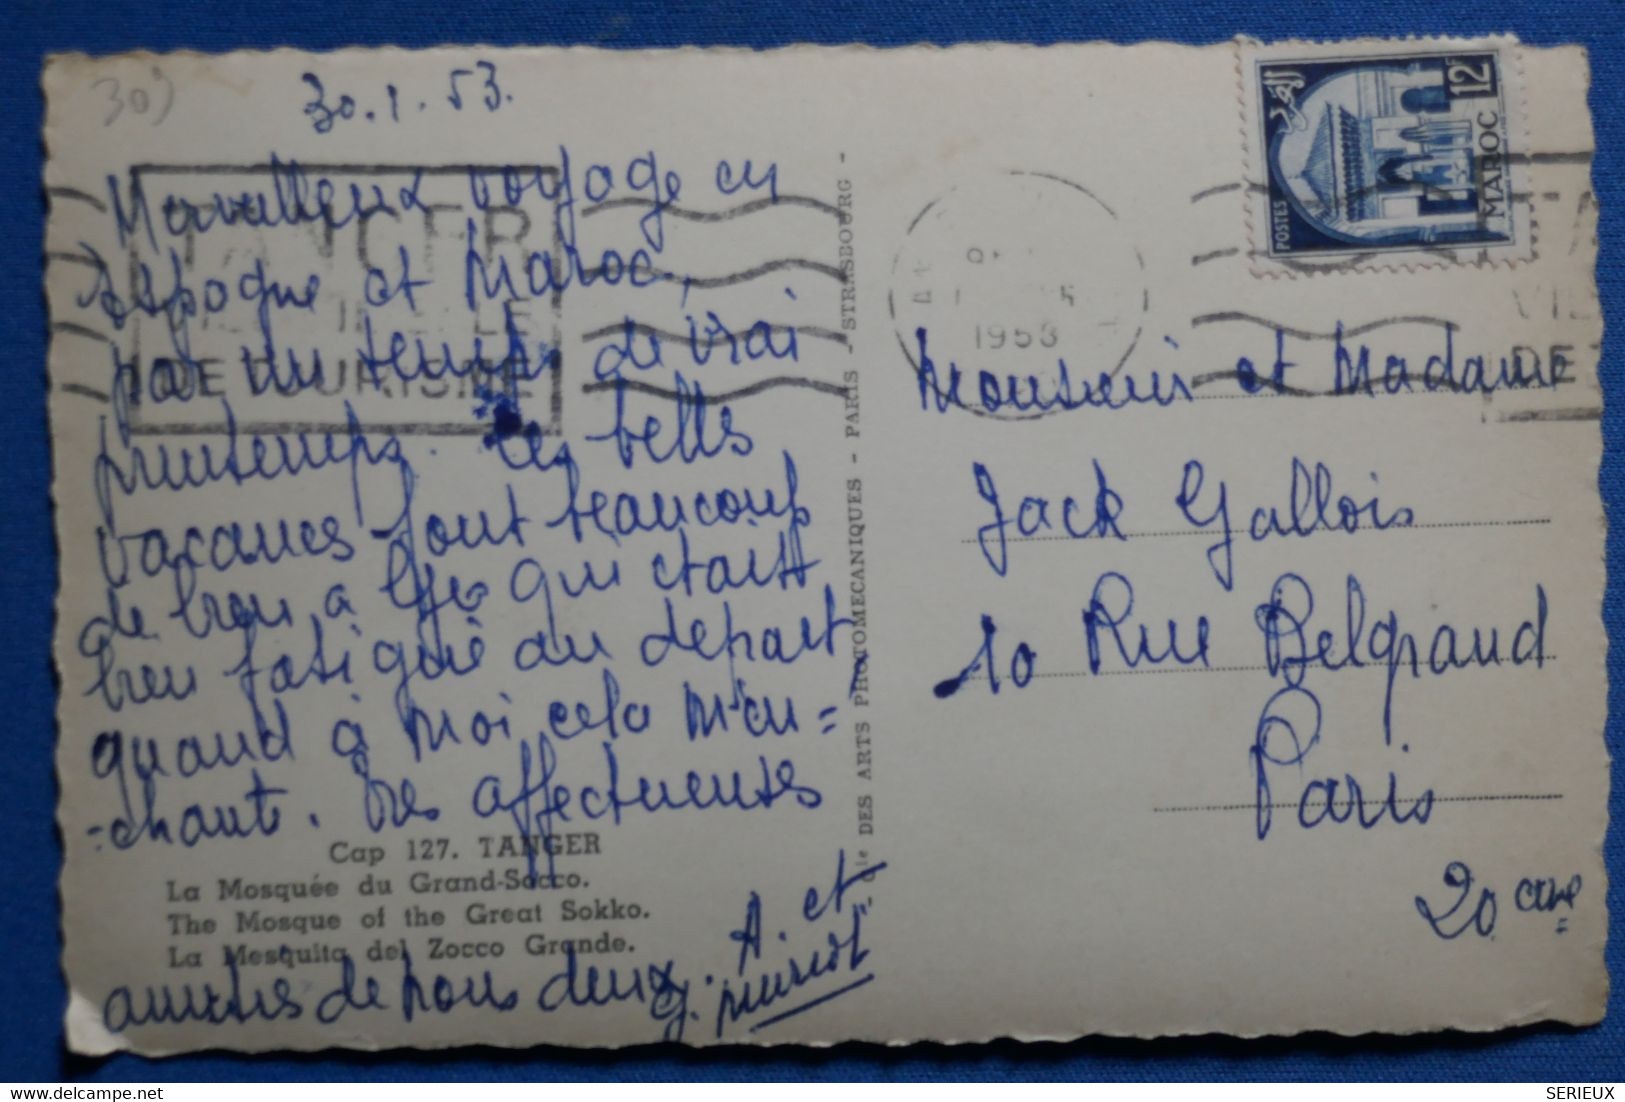 30)
30.1.53.
Marveilleux voyage en
Espagne et Maroc,
par un temps de vrai
printemps. Ces belles
vacances font beaucoup
de bien à qui était
bien fatigué au départ
quand à moi cela m'en=
=chante. Très affectueuses
Cap 127. TANGER
La Mosquée du Grand-Socco.
The Mosque of the Great Sokko.
La Mesquita del Zocco Grande.
amitiés de nous deux. A. et
G.
TANGER
DE TOURISME
Cie DES ARTS PHOTOMECANIQUES - PARIS - STRASBOURG -
1953
POSTES
MAROC
12F
DE
Monsieur et Madame
Jack Gallois
10 Rue Belgrand
Paris
20 ème
SERIEUX